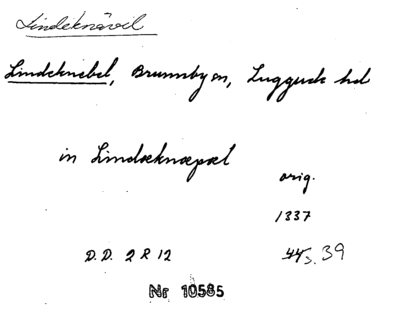 Lindeknävel
Lindeknebel, Brunnby sn, Luggude hd
in Lindæknæpæl
orig.
1337
D.D. 2 R 12
44 s. 39
Nr 10585